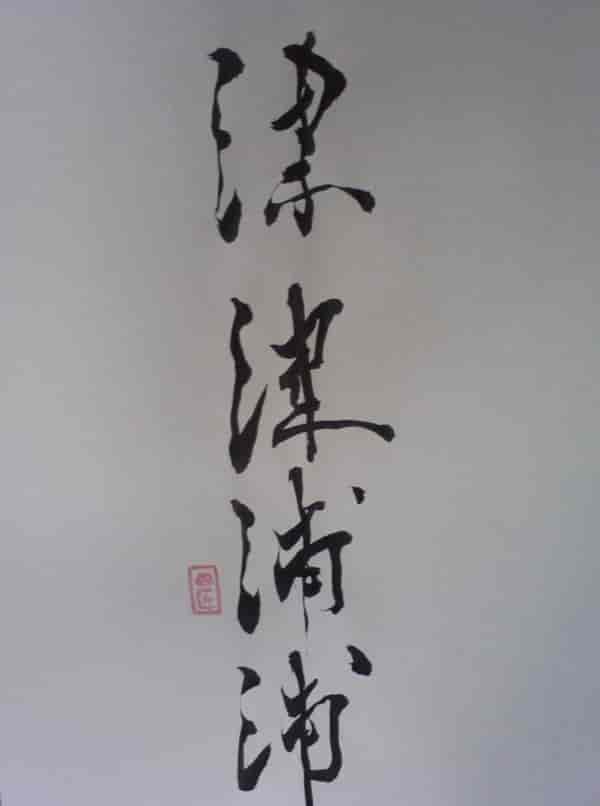 津津浦浦